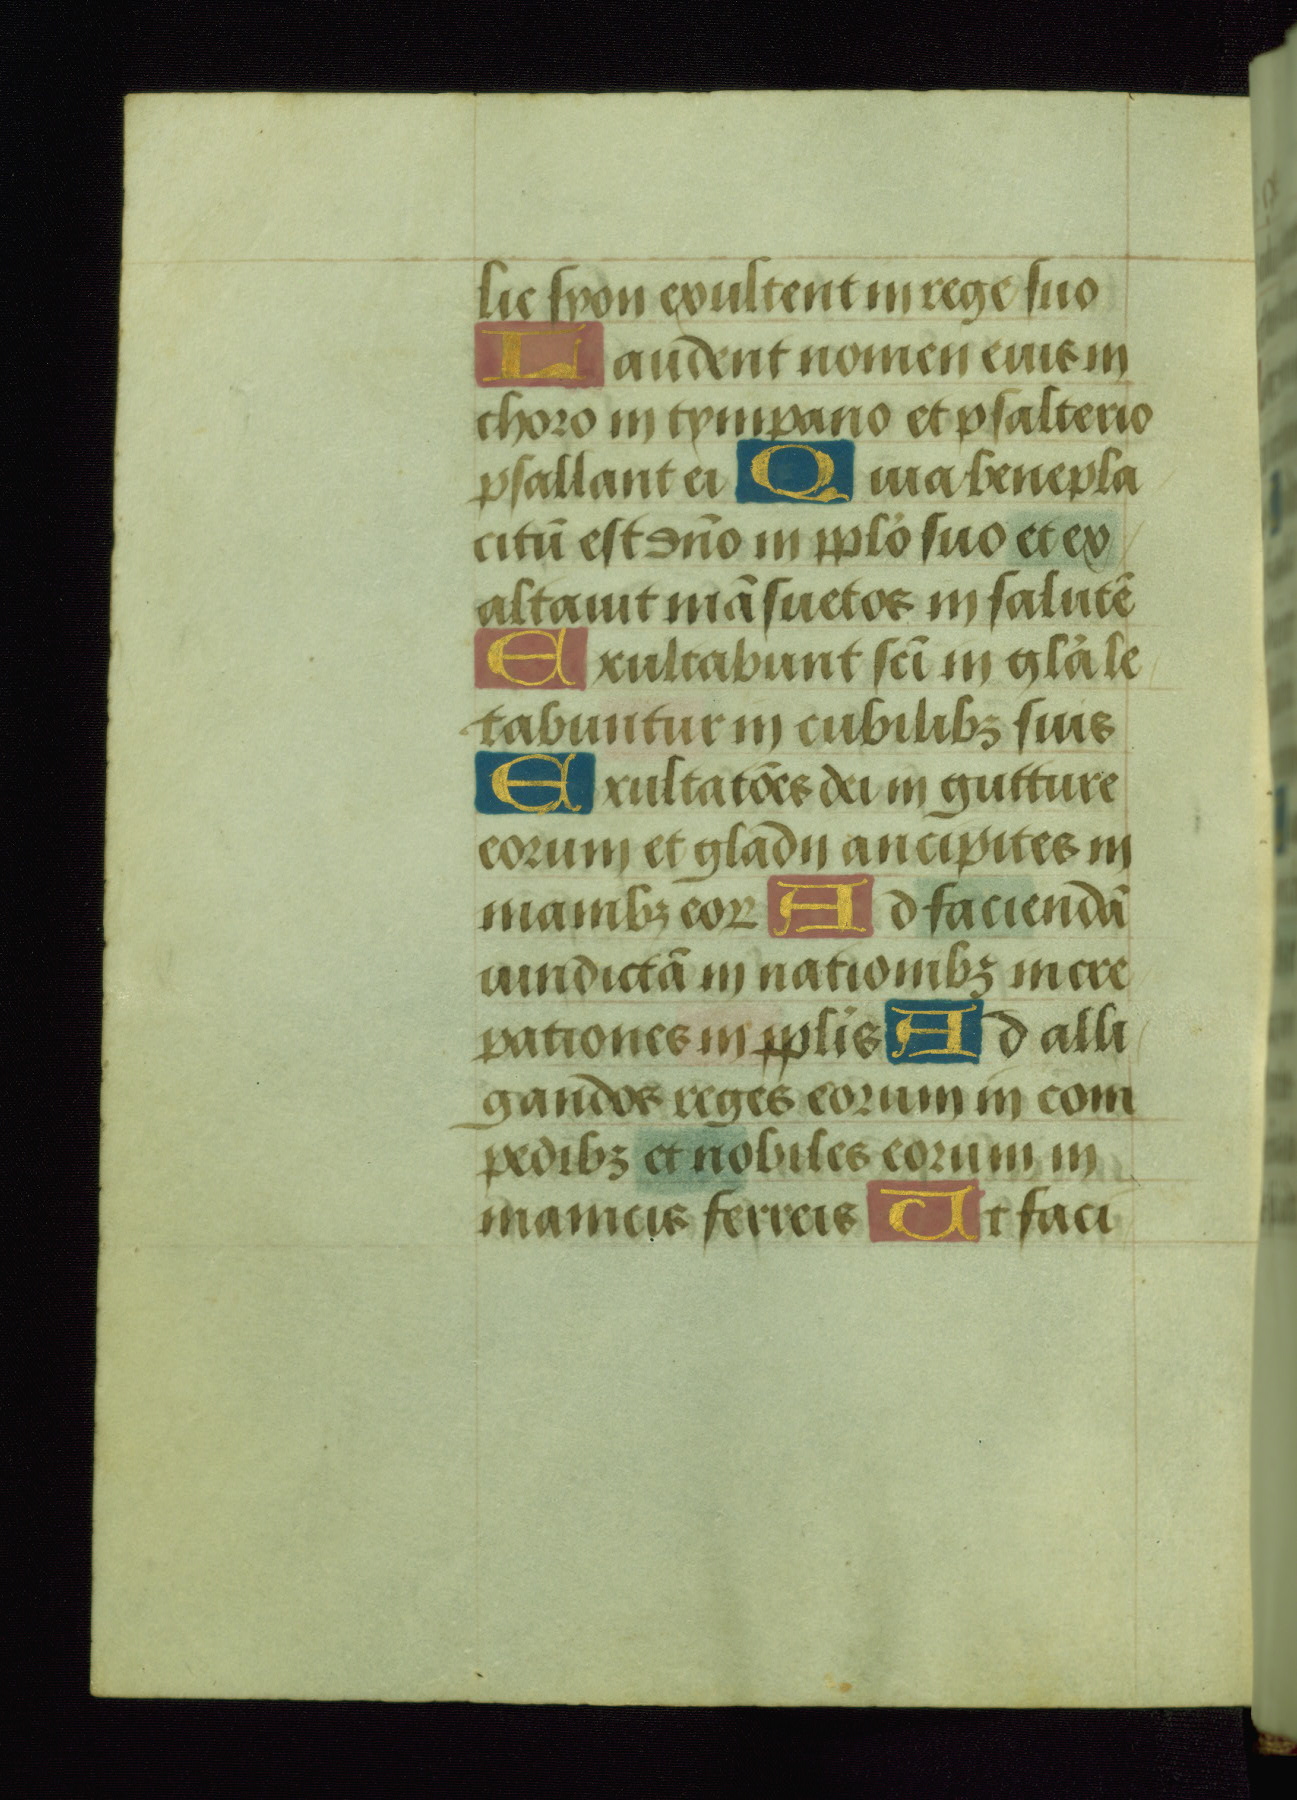 lie syon exultent in rege suo
Laudent nomen eius in
choro in tympano et psalterio
psallant ei Quia benepla
citū est dn̄o in pplō suo et ex
altauit māsuetos in salutē
Exultabunt sc̄i in glā le
tabuntur in cubilibꝫ suis
Exultatōes dei in gutture
eorum et gladii ancipites in
manibꝫ eoꝝ Ad faciendā
uindictā in nationibꝫ incre
pationes in pplīs Ad alli
gandos reges eorum in com
pedibꝫ et nobiles eorum in
manicis ferreis Ut faci